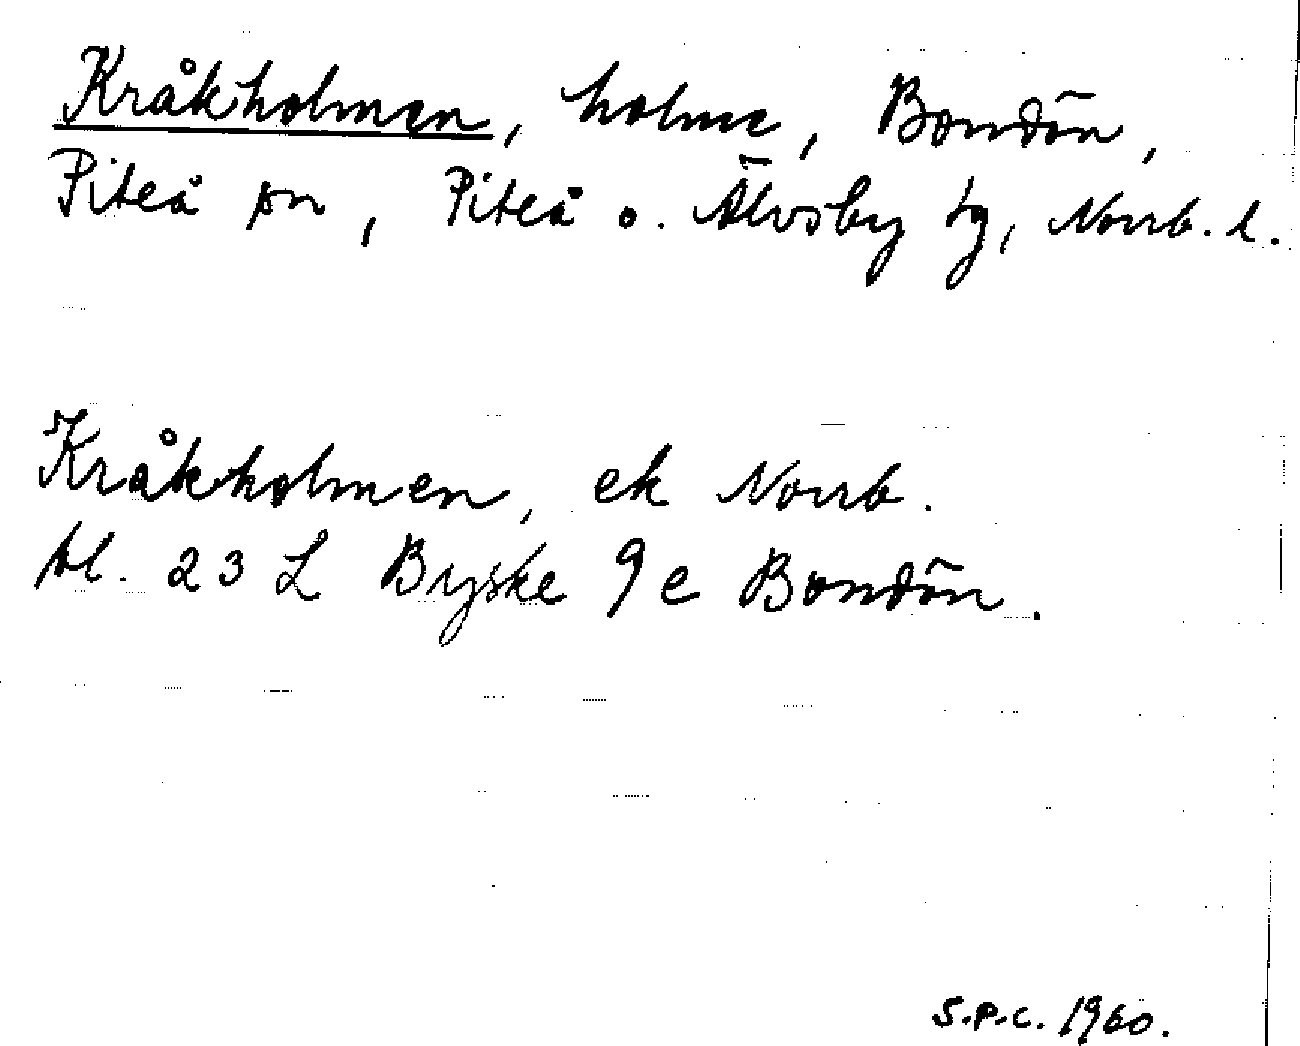 Kråkholmen, holme, Bondön,
Piteå sn, Piteå o. Älvsby tg, Norrb. l.
Kråkholmen, ek Norrb.
bl. 23 L Byske 9 e Bondön.
S.P.C. 1960.